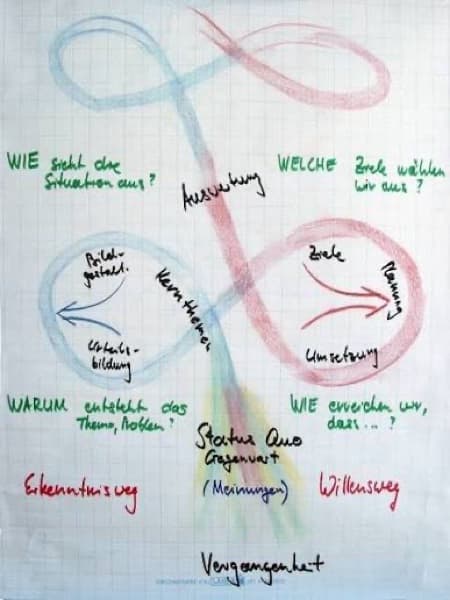 WIE sieht die
Situation aus?
WELCHE Ziele wählen
wir aus?
Auswertung
Bild-
gestalt.
Urteils-
bildung
Kernthemen
Ziele
Planung
Umsetzung
WARUM entsteht das
Thema, Problem?
WIE erreichen wir,
dass...?
Status Quo
Gegenwart
(Meinungen)
Erkenntnisweg
Willensweg
Vergangenheit